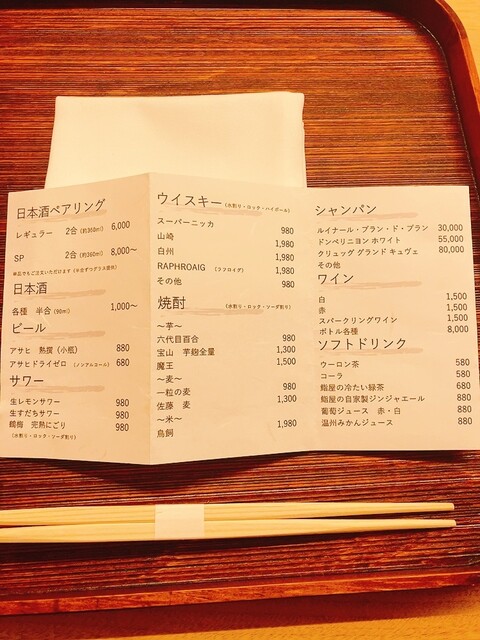 日本酒ペアリング
レギュラー 2合(約360㎖) 6,000
SP 2合(約360㎖) 8,000〜
日本酒
各種 半合(90㎖) 1,000〜
ビール
アサヒ 熟撰(小瓶) 880
アサヒドライゼロ (ノンアルコール) 680
サワー
生レモンサワー 980
生すだちサワー 980
鶴梅 完熟にごり 980
(水割り・ロック・ソーダ割り)
ウイスキー (水割り・ロック・ハイボール)
スーパーニッカ 980
山崎 1,980
白州 1,980
RAPHROAIG (ラフロイグ) 1,980
その他 980
焼酎 (水割り・ロック・ソーダ割り)
〜芋〜
六代目百合 980
宝山 芋麹全量 1,300
魔王 1,500
〜麦〜
一粒の麦 980
佐藤 麦 1,300
〜米〜
鳥飼 1,980
シャンパン
ルイナール・ブラン・ド・ブラン 30,000
ドンペリニヨン ホワイト 55,000
クリュッグ グランド キュヴェ 80,000
その他
ワイン
白 1,500
赤 1,500
スパークリングワイン 1,500
ボトル各種 8,000
ソフトドリンク
ウーロン茶 580
コーラ 580
鮨屋の冷たい緑茶 680
鮨屋の自家製ジンジャエール 880
葡萄ジュース 赤・白 880
温州みかんジュース 880